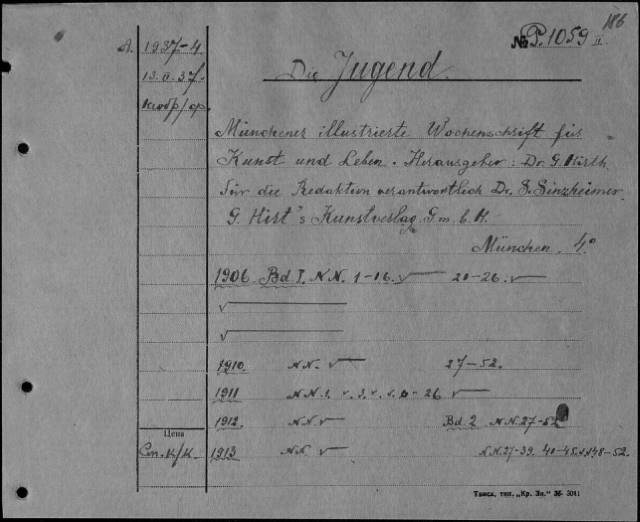 186
№ P. 1059 II
A. 1937-4
13.II.37.
Die Jugend.
Münchener illustrierte Wochenschrift für
Kunst und Leben. Herausgeber: Dr. G. Hirth.
Für die Redaktion verantwortlich Dr. S. Sinzheimer.
G. Hirt's Kunstverlag G m. b. H.
München. 4°
1906 Bd I. NN. 1-16. 20-26.
1910 NN. 27-52.
1911 NN. 1. 3. 26
1912 NN Bd. 2 NN. 27-52
Цена
1913 NN NN. 27-39. 40-45. 48-52.
Томск, тип. „Кр. Зн." 36-3041